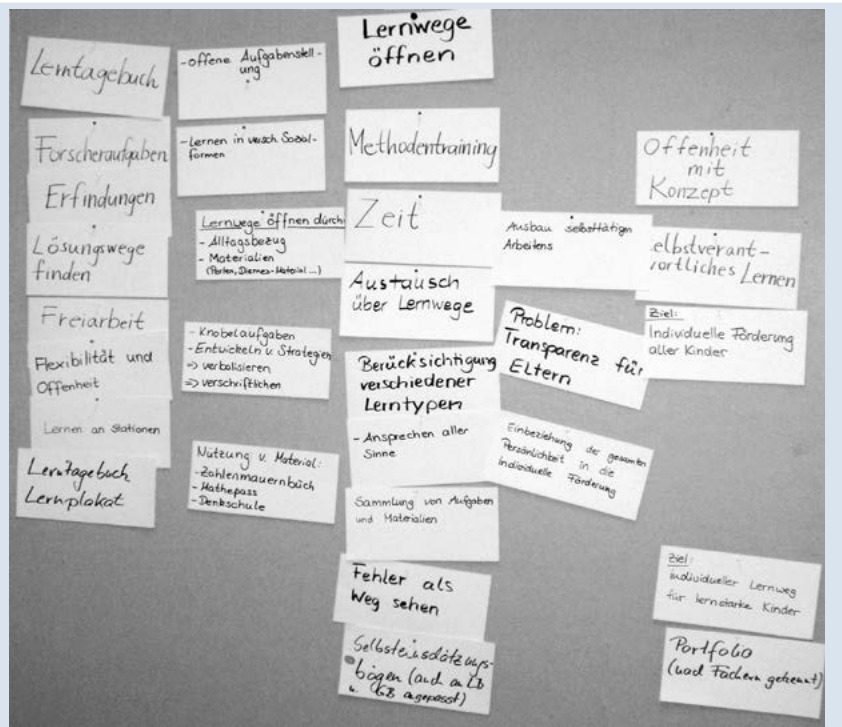 Lernwege
öffnen
Lerntagebuch
Forscheraufgaben
Erfindungen
Lösungswege
finden
Freiarbeit
Flexibilität und
Offenheit
Lernen an Stationen
Lerntagebuch
Lernplakat
-offene Aufgabenstell-
ung
-Lernen in versch. Sozial-
formen
Lernwege öffnen durch
- Alltagsbezug
- Materialien
(Perlen, Dienes-Material...)
- Knobelaufgaben
- Entwickeln v. Strategien
=> verbalisieren
=> verschriftlichen
Nutzung v. Material:
-Zahlenmauernbuch
-Mathepass
-Denkschule
Methodentraining
Zeit
Austausch
über Lernwege
Berücksichtigung
verschiedener
Lerntypen
- Ansprechen aller
Sinne
Sammlung von Aufgaben
und Materialien
Fehler als
Weg sehen
Selbsteinschätzungs-
bögen (auch an LB
u. GB angepasst)
Ausbau selbsttätigen
Arbeitens
Problem:
Transparenz für
Eltern
Einbeziehung der gesamten
Persönlichkeit in die
individuelle Förderung
Offenheit
mit
Konzept
elbstverant-
ortliches Lernen
Ziel:
Individuelle Förderung
aller Kinder
Ziel:
individueller Lernweg
für lernstarke Kinder
Portfolio
(nach Fächern getrennt)